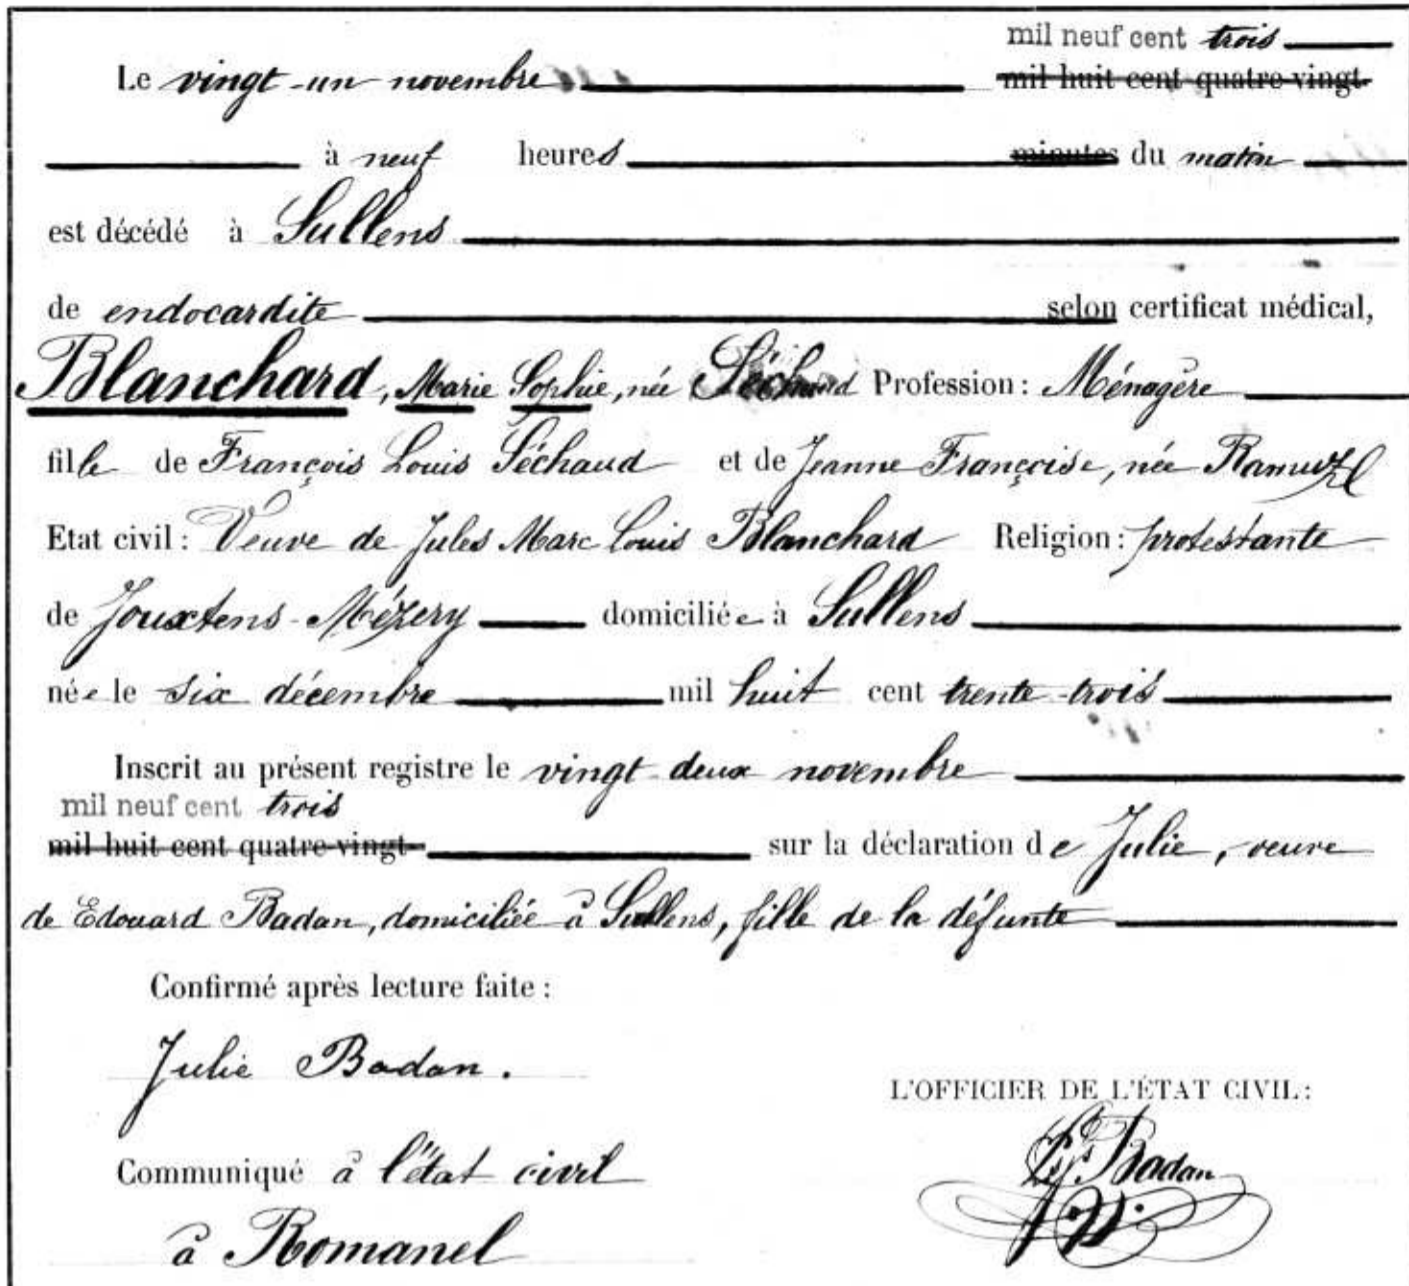 mil neuf cent trois
Le vingt-un novembre mil huit cent quatre-vingt-
à neuf heures minutes du matin
est décédé à Sullens
de endocardite selon certificat médical,
Blanchard, Marie Sophie, née Séchaud Profession: Ménagère
fille de François Louis Séchaud et de Jeanne Françoise, née Ramuz
Etat civil: Veuve de Jules Marc Louis Blanchard Religion: protestante
de Jouxtens-Mézery domiciliée à Sullens
née le six décembre mil huit cent trente-trois
Inscrit au présent registre le vingt-deux novembre
mil neuf cent trois
mil huit cent quatre-vingt- sur la déclaration de Julie, veuve
de Edouard Badan, domiciliée à Sullens, fille de la défunte
Confirmé après lecture faite:
Julie Badan.
L'OFFICIER DE L'ÉTAT CIVIL:
Badan
Communiqué à l'état civil
à Romanel